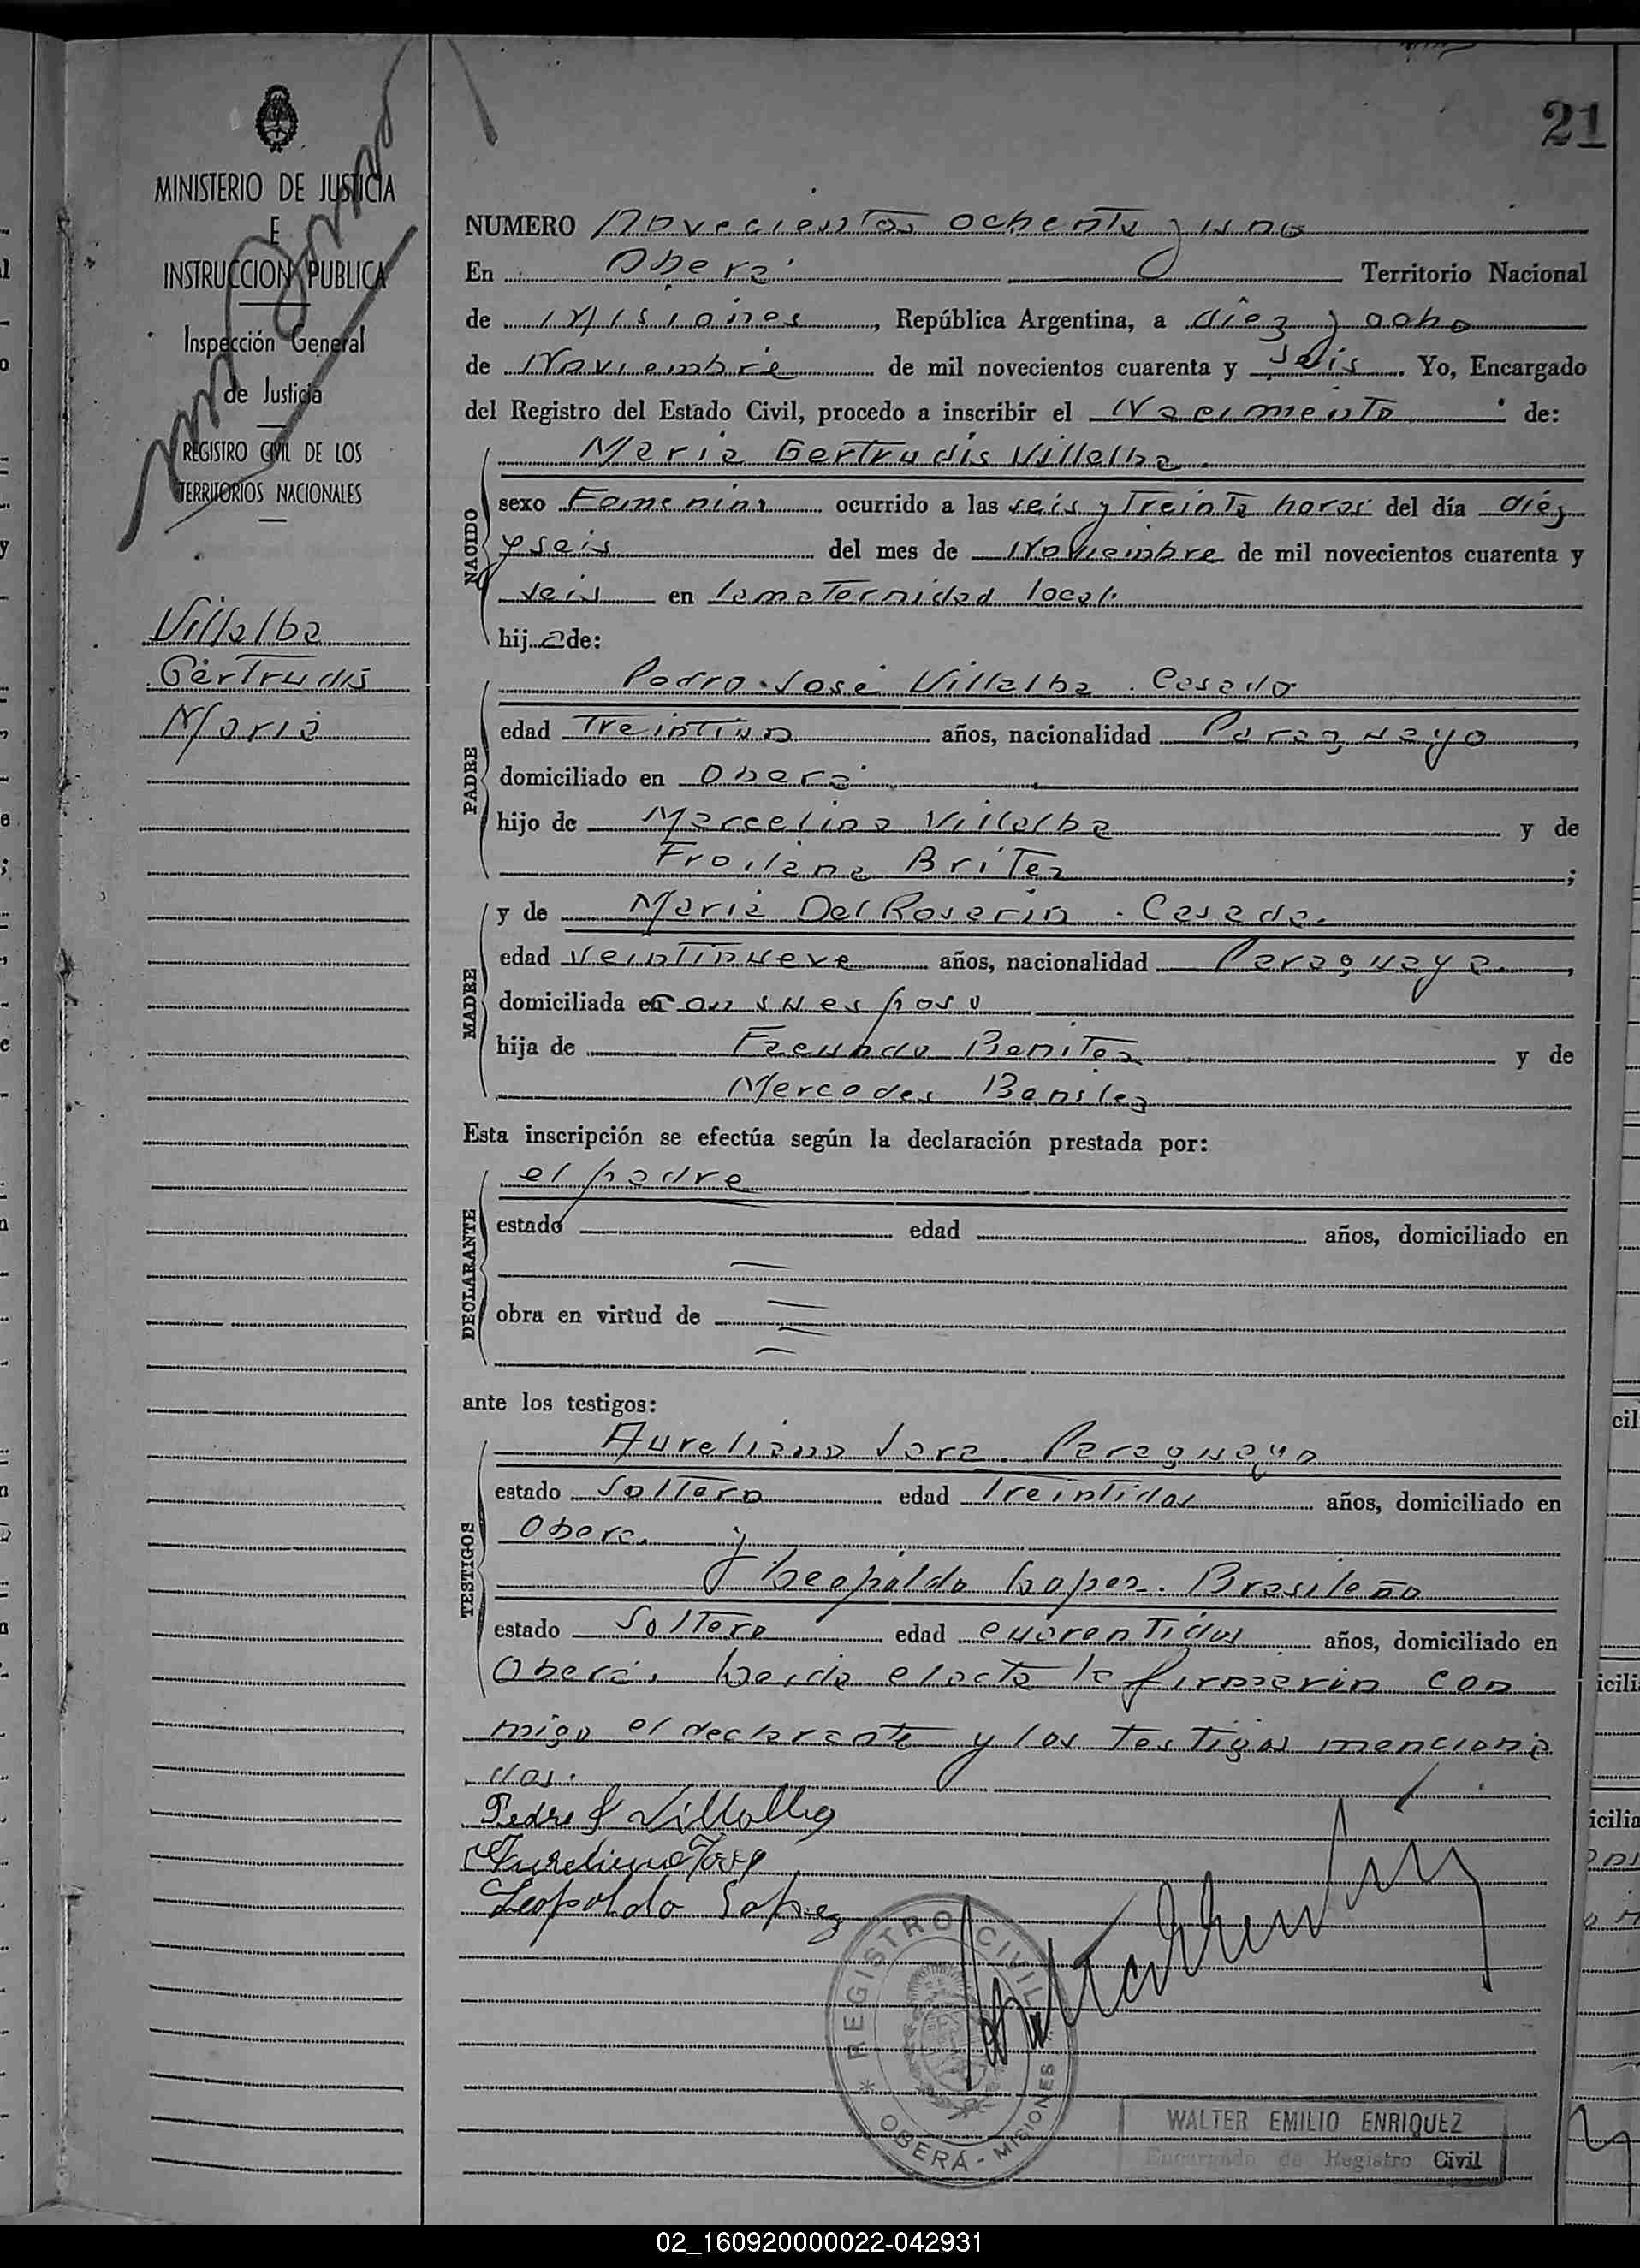 21
MINISTERIO DE JUSTICIA
E
INSTRUCCION PUBLICA
Inspección General
de Justicia
REGISTRO CIVIL DE LOS
TERRITORIOS NACIONALES
Villalba
Gertrudis
Maria
NUMERO Novecientos ochenta y uno
En Oberá Territorio Nacional
de Misiones, República Argentina, a diez y ocho
de Noviembre de mil novecientos cuarenta y seis. Yo, Encargado
del Registro del Estado Civil, procedo a inscribir el Nacimiento de:
NACIDO
Maria Gertrudis Villalba
sexo Femenino ocurrido a las seis y treinta horas del día diez
y seis del mes de Noviembre de mil novecientos cuarenta y
seis en la maternidad local.
hija de:
PADRE
Pedro José Villalba. Casado
edad Treintiun años, nacionalidad Paraguayo,
domiciliado en Oberá
hijo de Marcelino Villalba y de
Froilana Britez;
MADRE
y de Maria Del Rosario. Casada.
edad veintinueve años, nacionalidad Paraguaya,
domiciliada en con su esposo
hija de Facundo Benitez y de
Mercedes
Esta inscripción se efectúa según la declaración prestada por:
DECLARANTE
el padre
estado edad años, domiciliado en
obra en virtud de
ante los testigos:
TESTIGOS
Aureliano Jara. Paraguayo
estado Soltero edad Treintidos años, domiciliado en
Oberá. y
Leopoldo Lopez. Brasileño
estado Soltero edad cuarentidos años, domiciliado en
Oberá. Leida el acta la firmarón con
migo el declarante y los testigos menciona
dos.
Pedro J Villalba
Aureliano Jara
Leopoldo Lopez
REGISTRO CIVIL
* OBERÁ - MISIONES *
WALTER EMILIO ENRIQUEZ
Encargado de Registro Civil
02_160920000022-042931